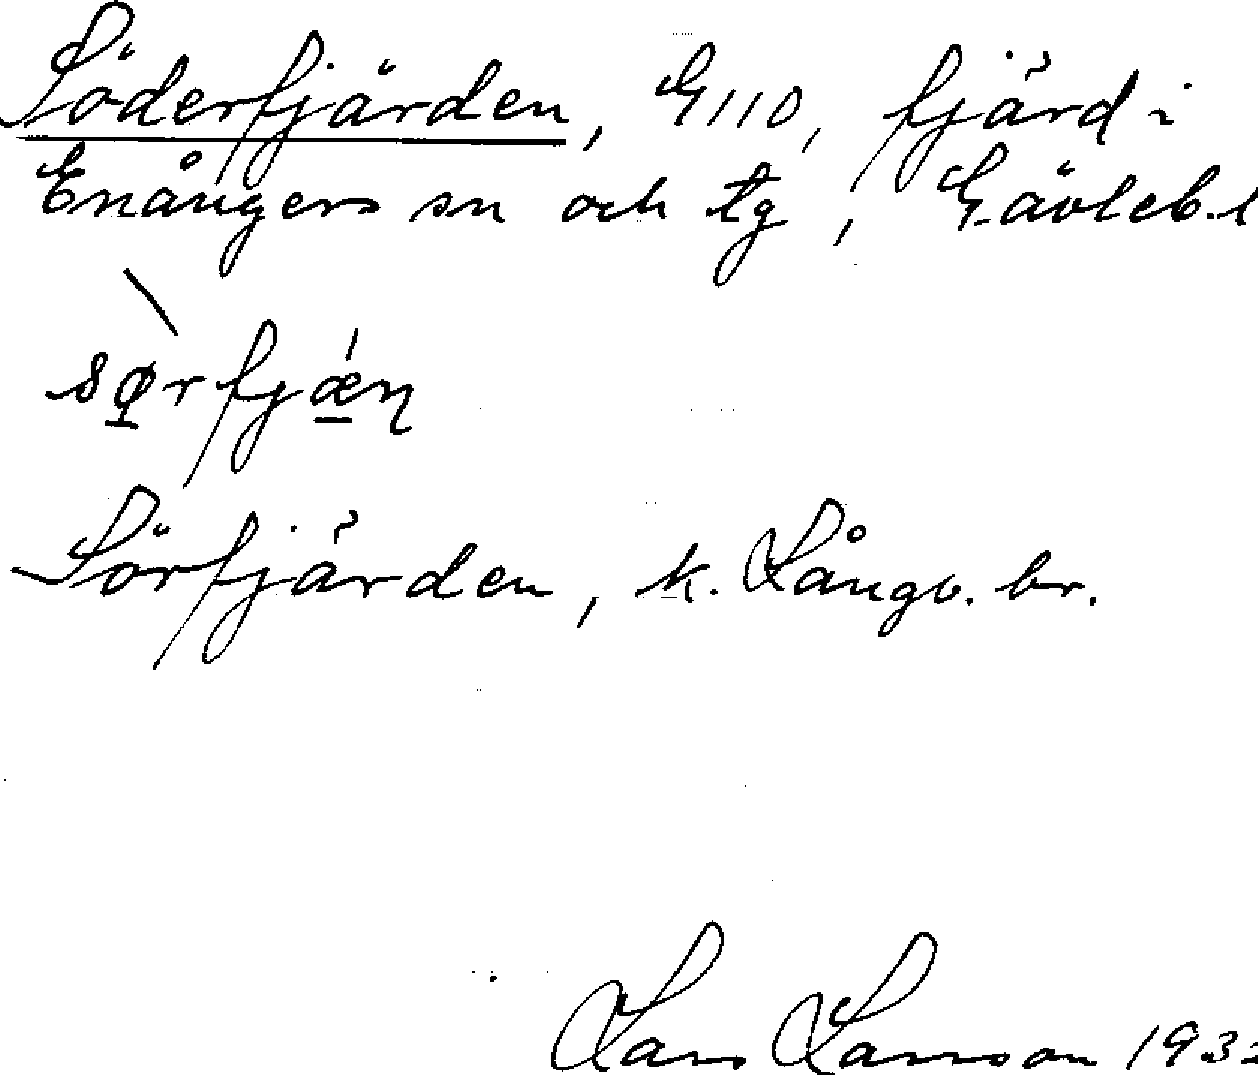 Söderfjärden, G110, fjärd i
Enångers sn och tg, Gävleb. l
sørfjæn
Sörfjärden, k. Långv. br.
Lars Larsson 193